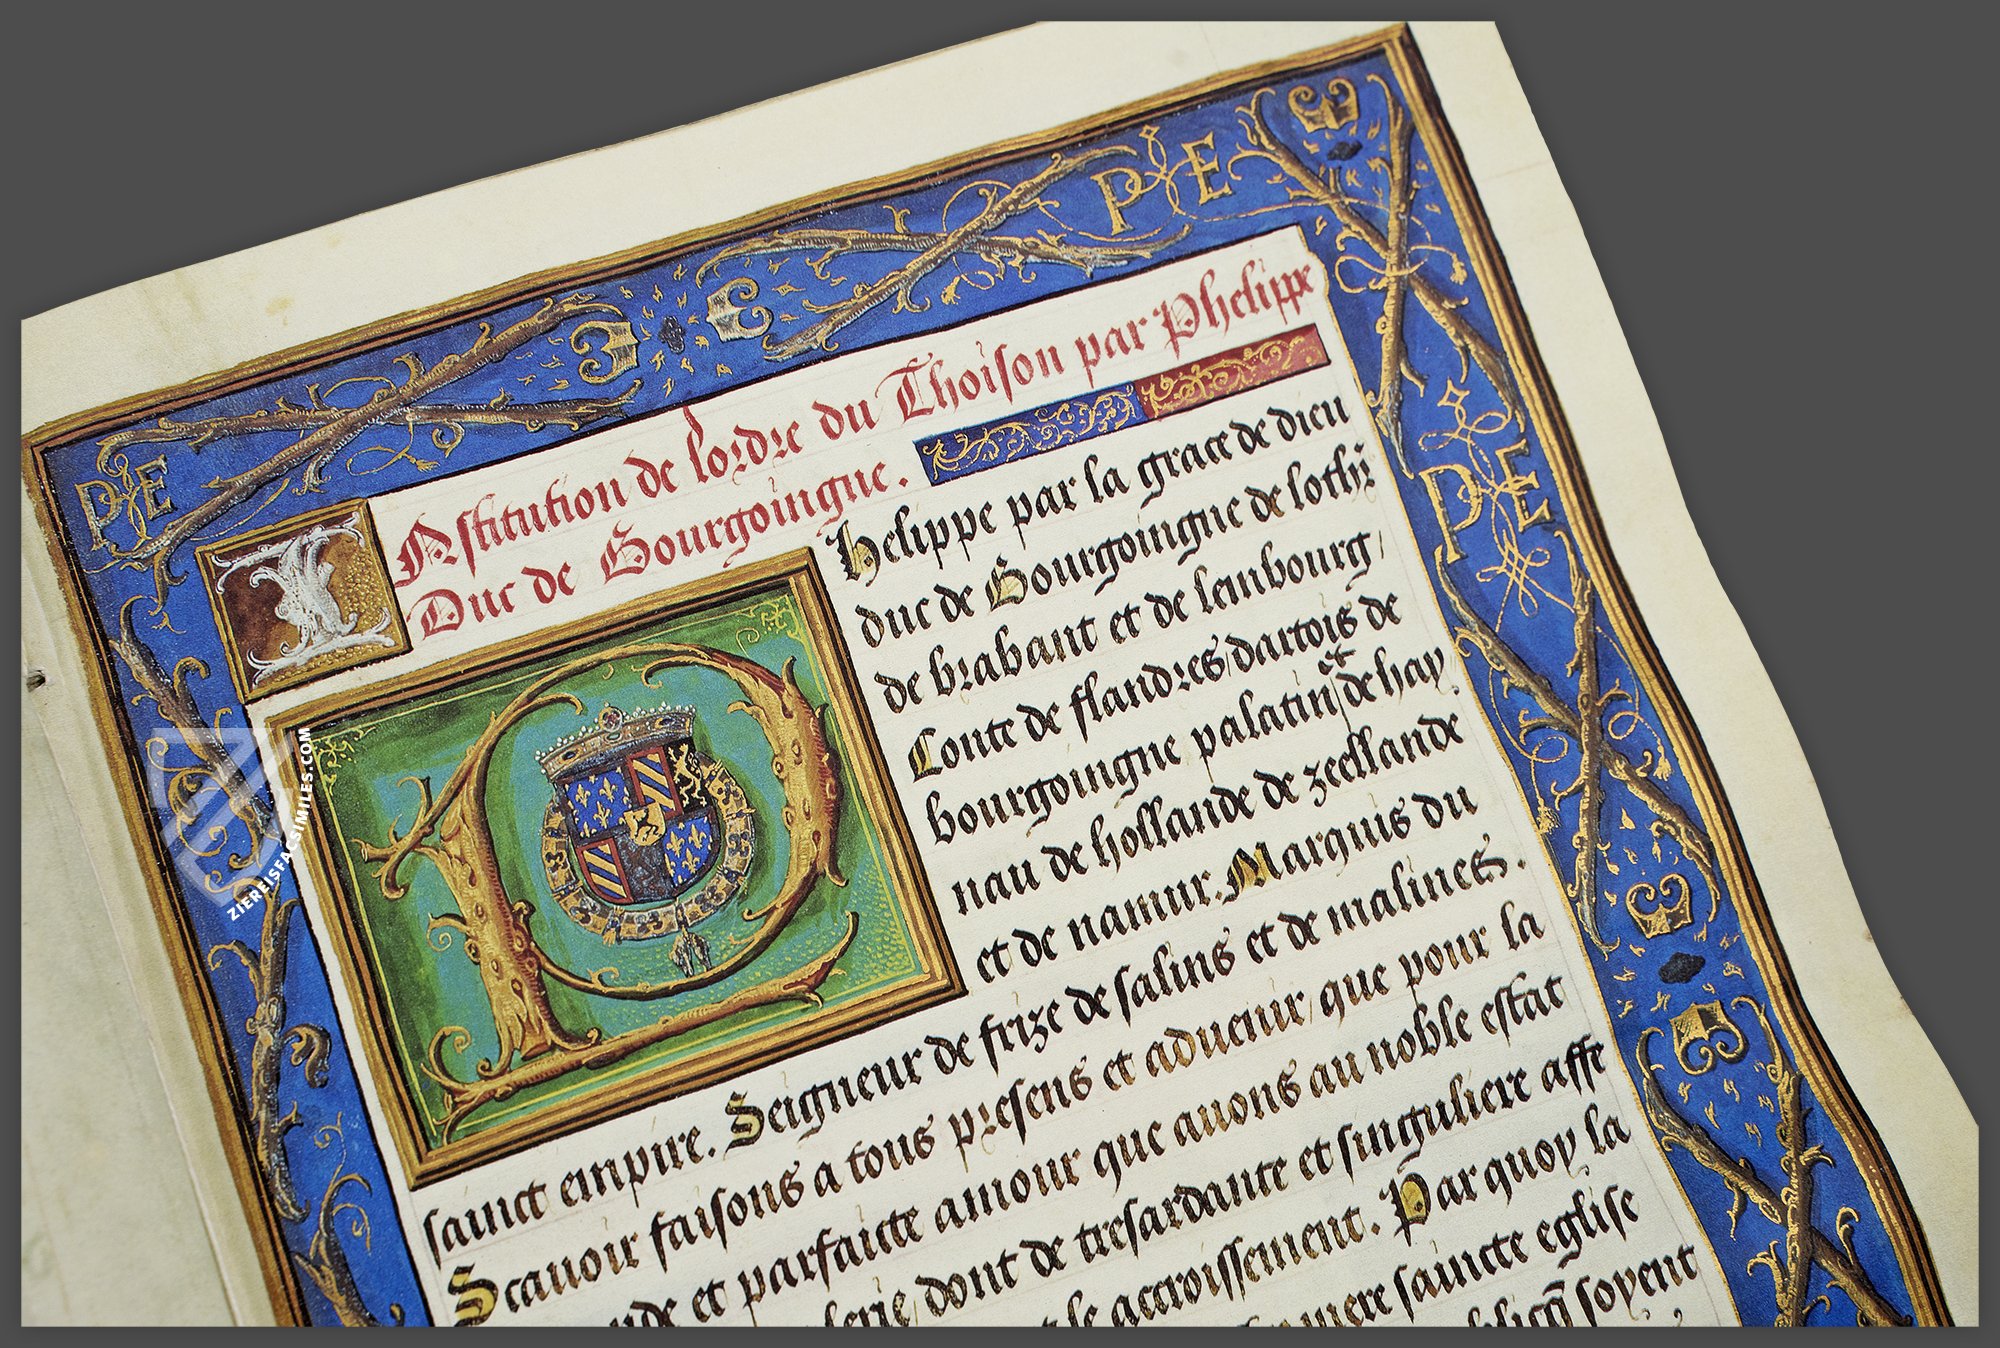 P E
P E
P E
INstitution de lordre du Thoison par Phelippe
Duc de Bourgoingne.
PHelippe par la grace de dieu
duc de Bourgoingne de lothr̄
de brabant et de lembourg/
Conte de flandres/dartois de
bourgoingne palatin/et de hay
nau de hollande de zeellande
et de namur. Marquis du
sainct empire. Seigneur de frize de salins et de malines.
Scauoir faisons a tous presens et aduenir/que pour la
et parfaicte amour que auons au noble estat
dont de tresardante et singuliere affe
accroissement. Par quoy la
mere saincte eglise
soyent
ZIEREISFACSIMILES.COM